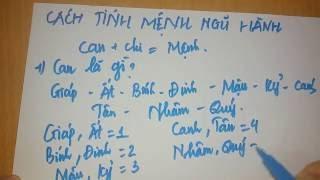 CÁCH TÍNH MỆNH NGŨ HÀNH
Can + chi = Mệnh.
Can là gì?
Giáp - Ất - Bính - Đinh - Mậu - Kỷ - Canh,
Tân - Nhâm - Quý.
Giáp, Ất = 1 Canh, Tân = 4
Bính, Đinh = 2 Nhâm, Quý =
Mậu, Kỷ = 3